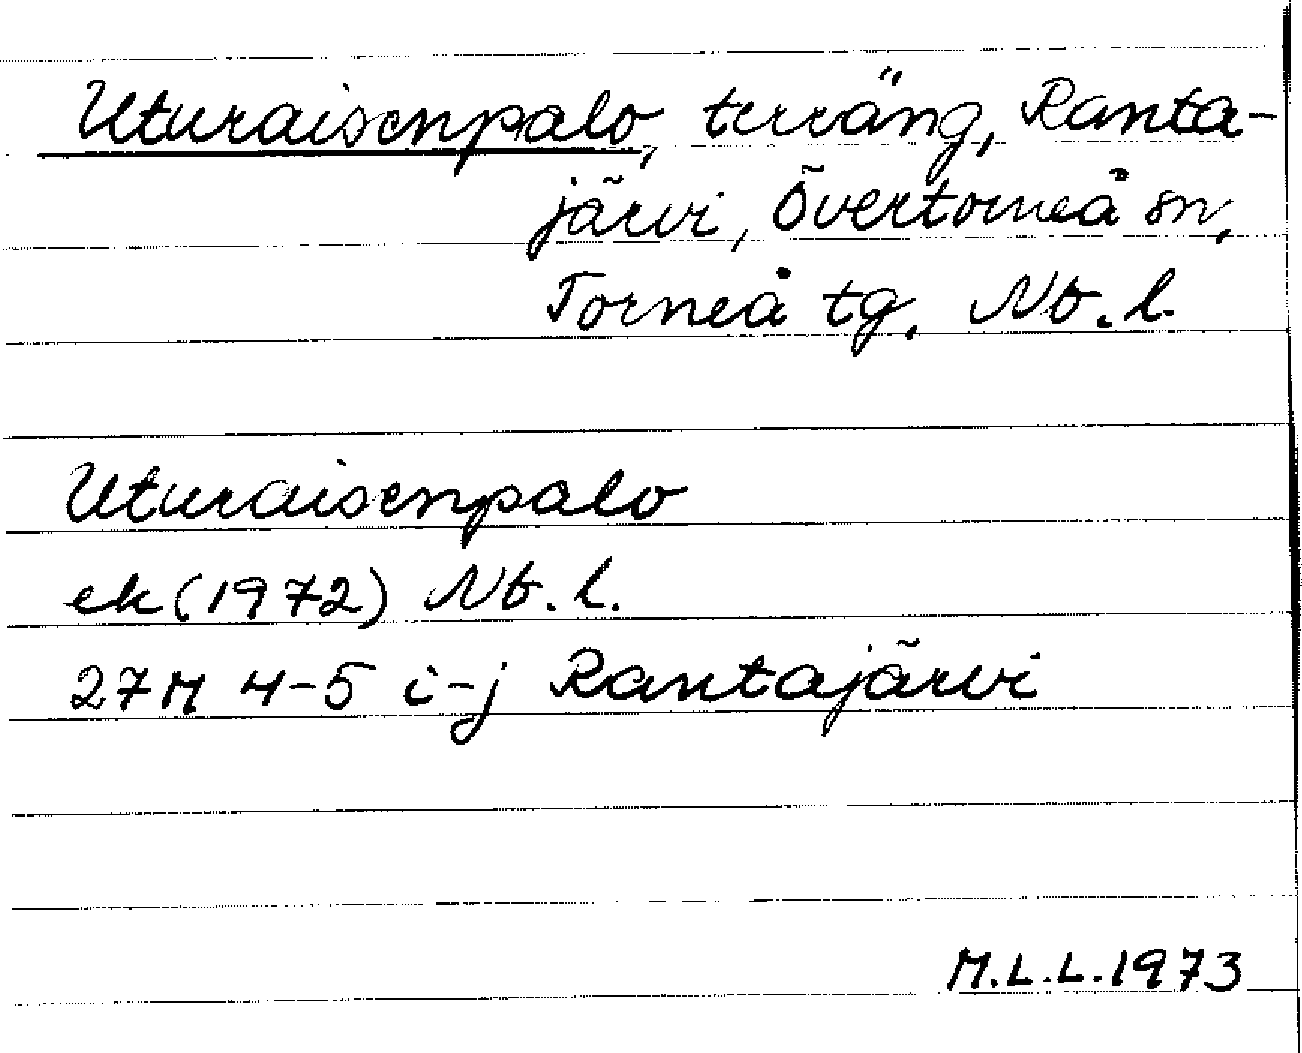 Uturaisenpalo, terräng, Ranta-
järvi, Övertorneå sn,
Torneå tg. Nb. l.
Uturaisenpalo
ek (1972) Nb. l.
27M 4-5 i-j Rantajärvi
M.L.L. 1973